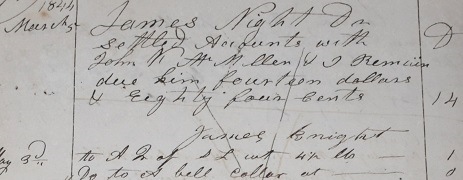 1844
March 5 James Night Dr D
Settled Acounts with
John K McMillen & I Remain
due him fourteen dollars
& Eighty four Cents 14
James Knight
May 3d to A 2 of S L wt 4½ lb — 1
Do to A bell collar at — 0